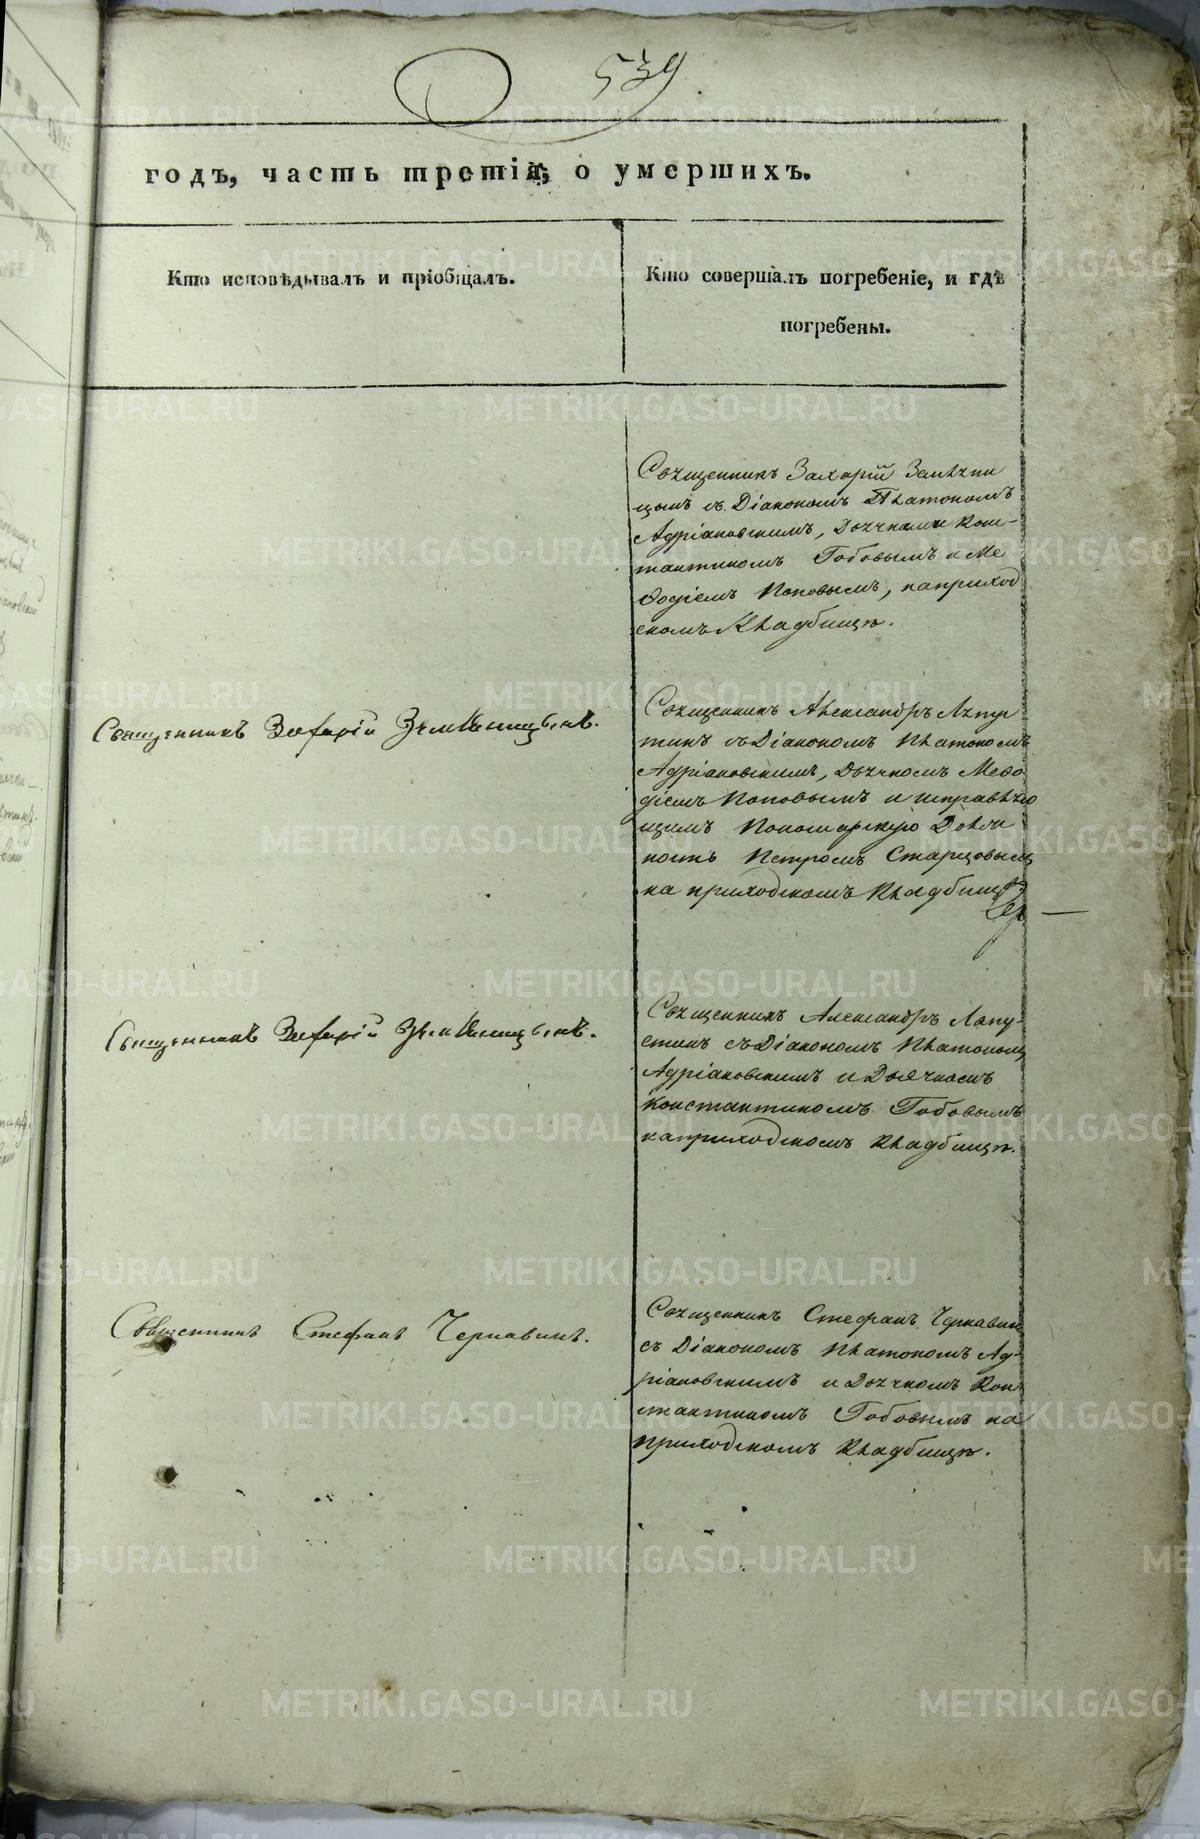 539
годъ, часть третія, о умершихъ.
Кто исповѣдывалъ и пріобщалъ.
Кто совершалъ погребеніе, и гдѣ
погребены.
Священникъ Захарій
цынъ съ Діакономъ Платономъ
Адріановскимъ, Дьячками Кон-
стантиномъ Гобовымъ и Ме
ѳодіемъ Поповымъ, на приход
скомъ Кладбищѣ.
Священникъ Захарій Земляницынъ.
Священникъ Александръ Лапус
тинъ съ Діакономъ Платономъ
Адріановскимъ, Дьячкомъ Меѳо
діемъ Поповымъ и исправляю
щимъ Пономарскую Долж
ность Петромъ Старцовымъ
на приходскомъ Кладбищѣ
Священникъ Захарій Земляницынъ.
Священникъ Александръ Лапу-
стинъ съ Діакономъ Платономъ
Адріановскимъ и Дьячкомъ
Константиномъ Гобовымъ
на приходскомъ Кладбищѣ.
Священникъ Стефанъ Чернавинъ.
Священникъ Стефанъ Чернавинъ
съ Діакономъ Платономъ Ад-
ріановскимъ и Дьячкомъ Кон
стантиномъ Гобовымъ на
приходскомъ Кладбищѣ.
METRIKI.GASO-URAL.RU